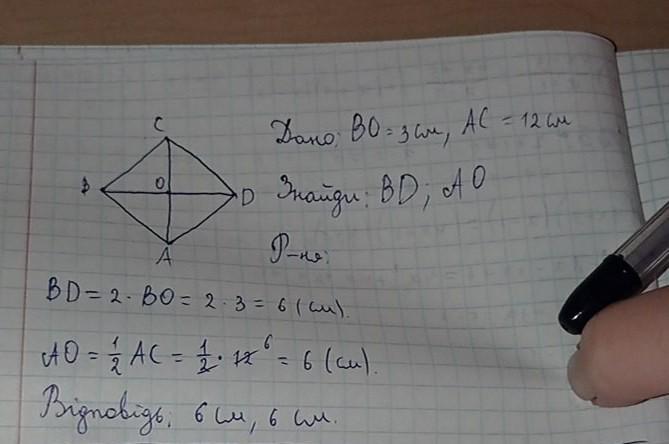 C
Дано: BO = 3 см, AC = 12 см
B O D
Знайди: BD; AO
A
Р-ня:
BD = 2 · BO = 2 · 3 = 6 (см).
AO = 1/2 AC = 1/2 · 12 6 = 6 (см).
Відповідь: 6 см, 6 см.